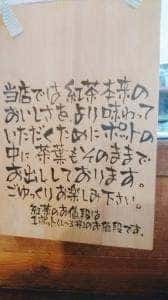 当店では紅茶本来の
おいしさをより味わって
いただくためにポットの
中に茶葉もそのままで
お出ししております。
ごゆっくりお楽しみ下さい。
紅茶のお値段は
1ポット(2〜3杯)のお値段です。